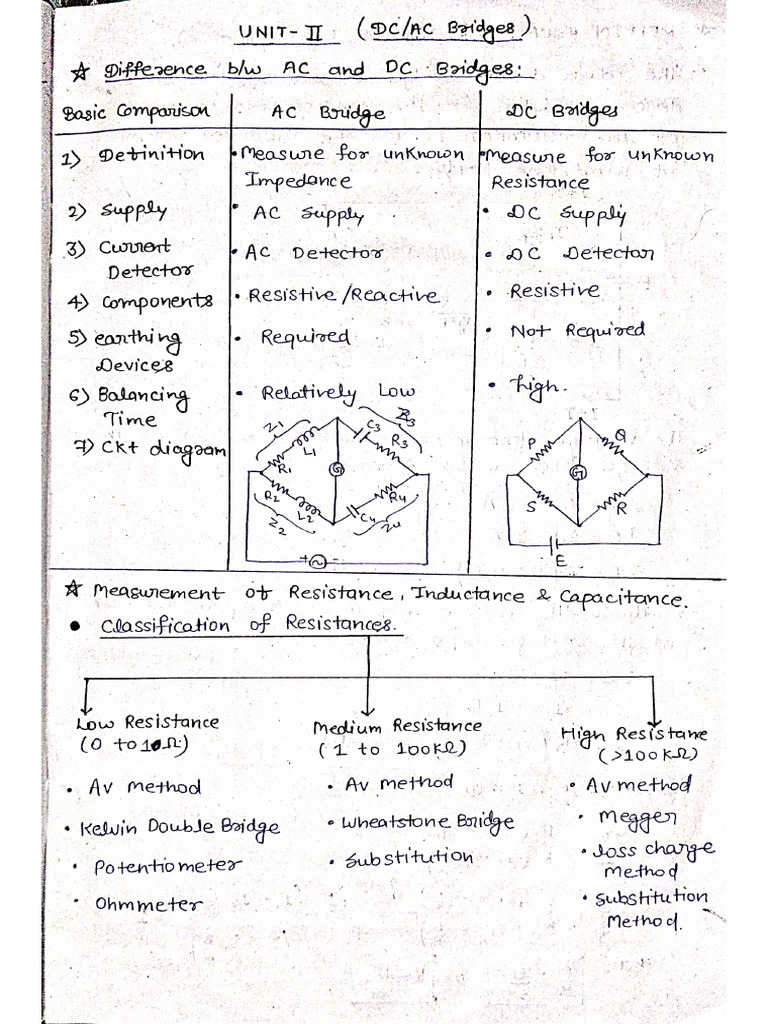 UNIT-II (DC/AC Bridges)
☆ Difference b/w AC and DC Bridges:
Basic Comparison AC Bridge DC Bridges
1) Definition • Measure for unknown Impedance • Measure for unknown Resistance
2) Supply • AC Supply • DC Supply
3) Current Detector • AC Detector • DC Detector
4) Components • Resistive/Reactive • Resistive
5) earthing Devices • Required • Not Required
6) Balancing Time • Relatively Low • high.
7) Ckt diagram
Z1 L1 R1 C3 R3 Z3
G
R2 L2 Z2 C4 R4 Z4
+ ~ -
P Q
G
S R
E
☆ Measurement of Resistance, Inductance & Capacitance.
• Classification of Resistances.
Low Resistance Medium Resistance High Resistane
(0 to 1Ω) (1 to 100KΩ) (>100KΩ)
• AV Method • AV method • AV method
• Kelvin Double Bridge • Wheatstone Bridge • Megger
• Potentiometer • Substitution • loss charge Method
• Ohmmeter • Substitution Method.